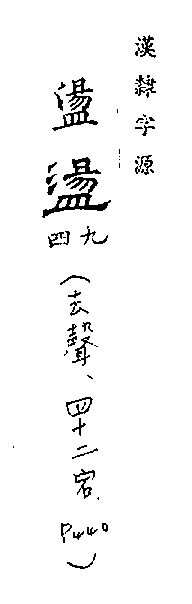 漢隸字源
盪
盪
四九
(去聲、四十二宕、P440)